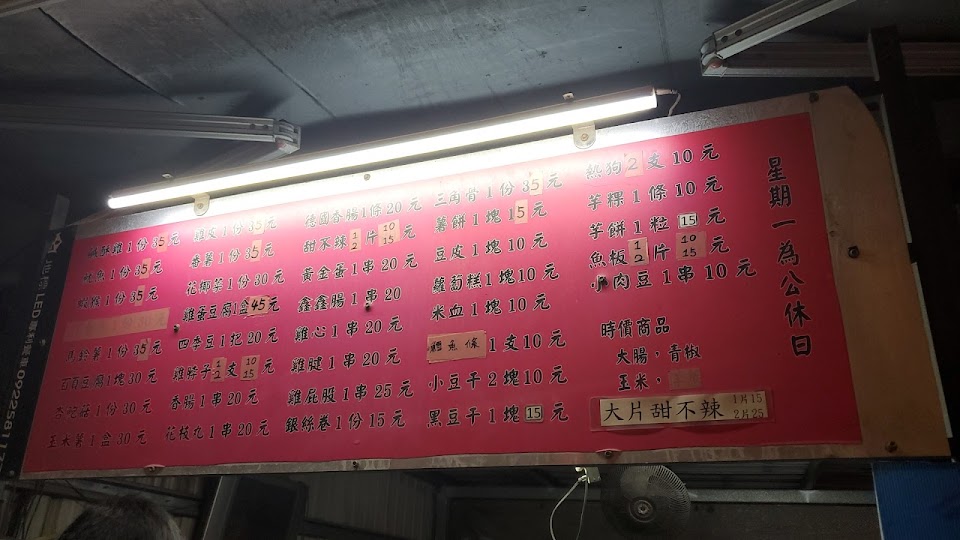 鹹酥雞1份35元
魷魚1份35元
1份35元
1份35元
豆腐1塊30元
杏鮑菇1份30元
玉米筍1盒30元
1份35元
番薯1份35元
花椰菜1份30元
雞蛋豆腐1盒45元
四季豆1把20元
雞脖子1 2支10 15元
香腸1串20元
花枝丸1串20元
德國香腸1條20元
甜不辣1 2片10 15元
黃金蛋1串20元
鑫鑫腸1串20
雞心1串20元
雞腱1串20元
雞屁股1串25元
銀絲卷1份15元
三角骨1份35元
薯餅1塊15元
豆皮1塊10元
蘿蔔糕1塊10元
米血1塊10元
鱈魚條1支10元
小豆干2塊10元
黑豆干1塊15元
熱狗2支10元
芋粿1條10元
芋餅1粒15元
魚板1 2片10 15元
小肉豆1串10元
時價商品
大腸，青椒
玉米，
大片甜不辣 1片15 2片25
星期一為公休日
LED專利發章0922581